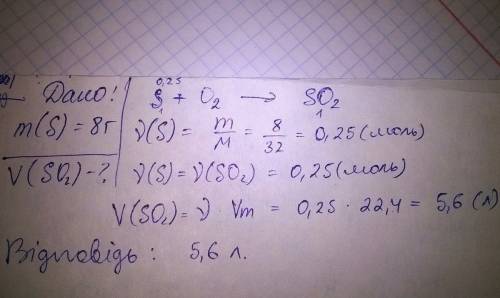 Дано:
m(S) = 8г
V(SO₂) - ?
0,25
S + O₂ → SO₂
1 1
ν(S) = m/M = 8/32 = 0,25 (моль)
ν(S) = ν(SO₂) = 0,25 (моль)
V(SO₂) = ν · Vm = 0,25 · 22,4 = 5,6 (л)
Відповідь : 5,6 л.